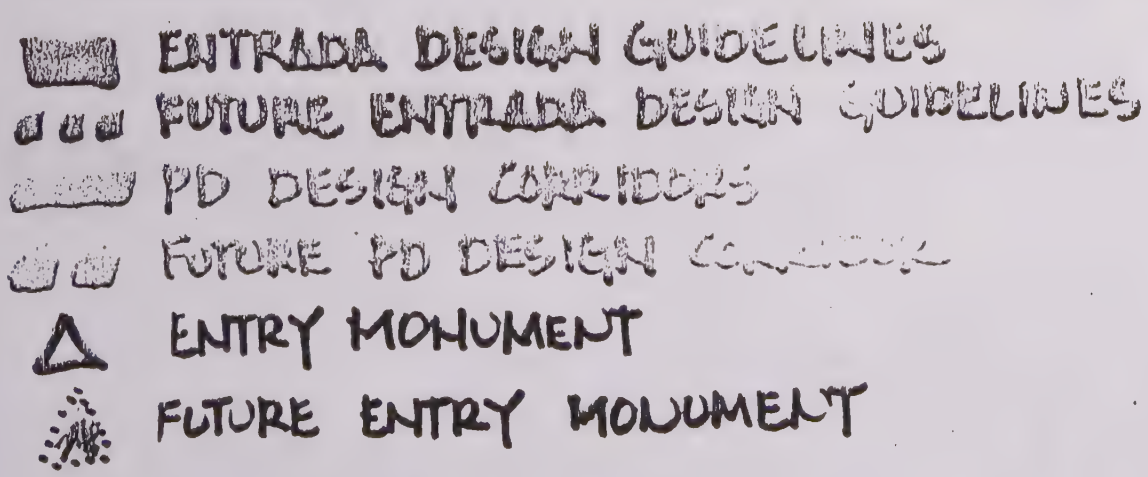 ENTRADA DESIGN GUIDELINES
FUTURE ENTRADA DESIGN GUIDELINES
PD DESIGN CORRIDORS
FUTURE PD DESIGN CORRIDOR
ENTRY MONUMENT
FUTURE ENTRY MONUMENT